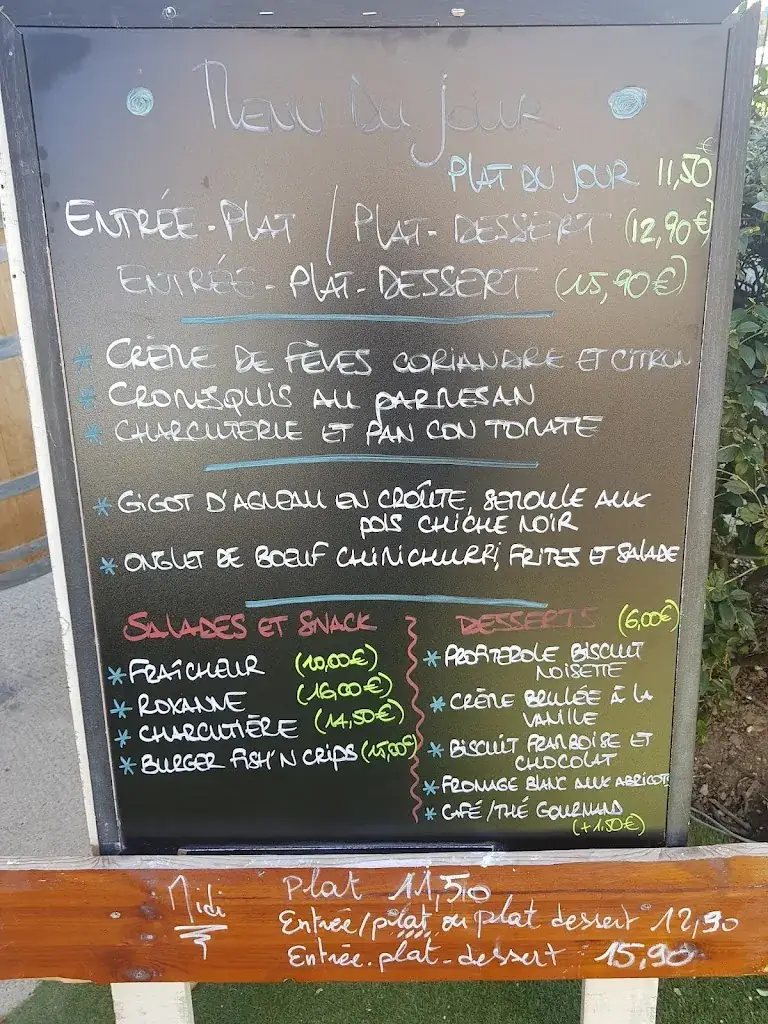 Menu Du jour
Plat du jour 11,50€
Entrée-Plat / Plat-Dessert (12,90€)
Entrée-Plat-Dessert (15,90€)
* Crème de fèves coriandre et citron
* Cromesquis au parmesan
* Charcuterie et pan con tomate
* Gigot d'agneau en croûte, semoule aux
pois chiche noir
* Onglet de boeuf chimichurri, frites et salade
Salades et snack
* Fraîcheur (10,00€)
* Roxanne (16,00€)
* Charcutière (14,50€)
* Burger fish'n crips (15,00€)
Desserts (6,00€)
* Profiterole biscuit
noisette
* Crème brulée à la
vanille
* Biscuit framboise et
chocolat
* Fromage blanc aux abricots
* Café/thé gourmand
(+1.50€)
Midi Plat 11,50
Entrée/plat ou plat dessert 12,90
Entrée.plat-dessert 15,90